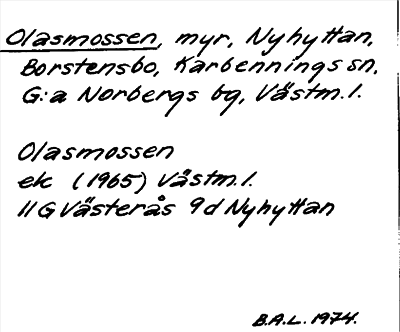 Olasmossen, myr, Nyhyttan,
Borstensbo, Karbennings sn,
G:a Norbergs bg, Västm.l.
Olasmossen
ek (1965) Västm.l.
11G Västerås 9d Nyhyttan
B.A.L. 1974.